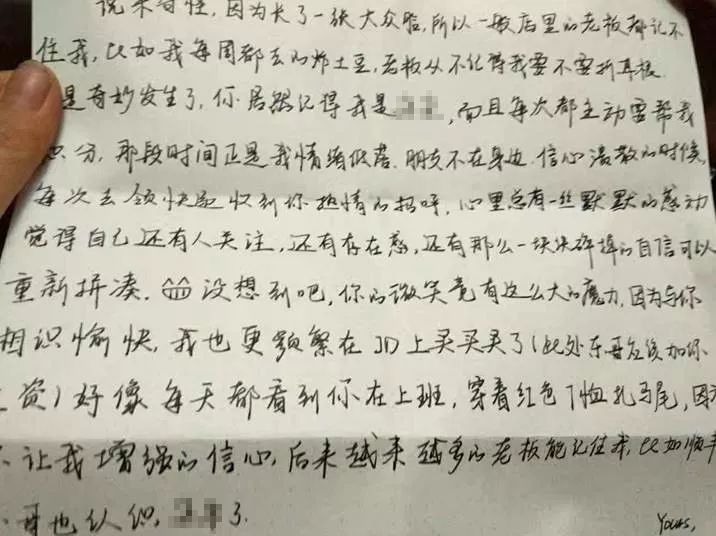 说来奇怪，因为长了一张大众脸，所以一般店里的老板都记不
住我，比如我每周都去的炸土豆，老板从不记得我要不要折耳根
是奇妙发生了，你居然记得我是，而且每次都主动要帮我
积分，那段时间正是我情绪低落，朋友不在身边，信心溃散的时候，
每次去领快递收到你热情的招呼，心里总有一丝默默的感动
觉得自己还有人关注，还有存在感，还有那么一块块碎掉的自信可以
重新拼凑。没想到吧，你的微笑竟有这么大的魔力，因为与你
相识愉快，我也更频繁在JD上买买买了（此处东哥应该加你
工资）好像每天都看到你在上班，穿着红色T恤扎马尾，因为
让我增强的信心，后来越来越多的老板能记住我，比如顺丰
哥也认识了.
Yours,